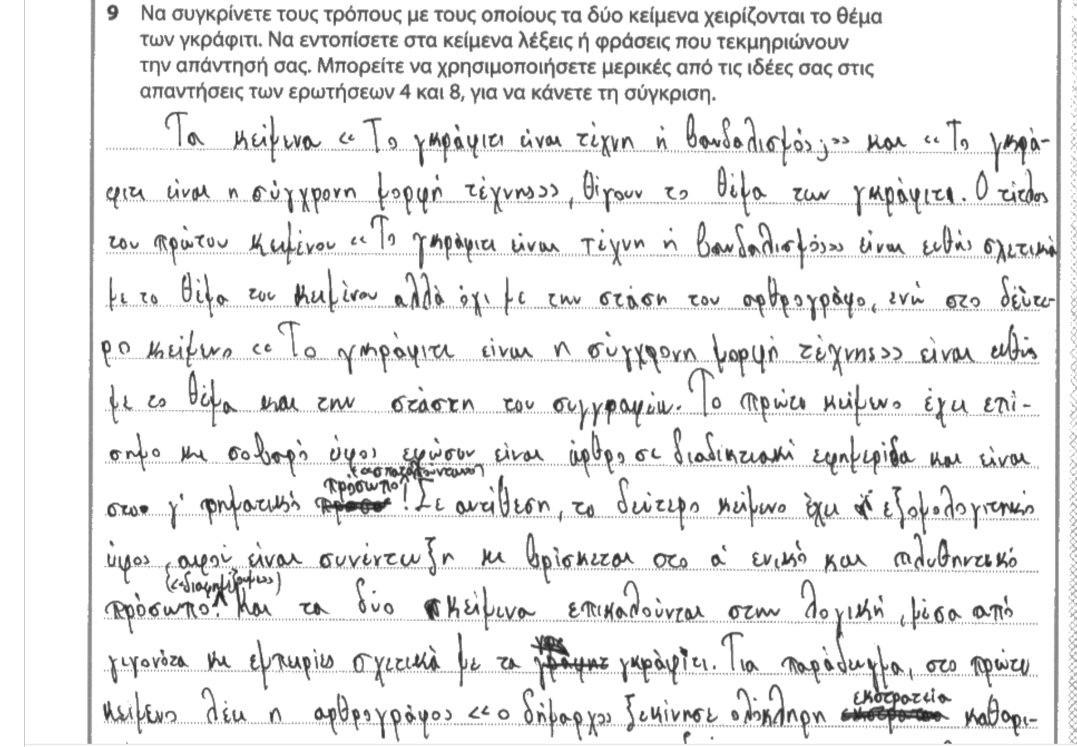 9 Να συγκρίνετε τους τρόπους με τους οποίους τα δύο κείμενα χειρίζονται το θέμα
των γκράφιτι. Να εντοπίσετε στα κείμενα λέξεις ή φράσεις που τεκμηριώνουν
την απάντησή σας. Μπορείτε να χρησιμοποιήσετε μερικές από τις ιδέες σας στις
απαντήσεις των ερωτήσεων 4 και 8, για να κάνετε τη σύγκριση.
Τα κείμενα «Το γκράφιτι είναι τέχνη ή βανδαλισμός;» και «Το γκρά-
φιτι είναι η σύγχρονη μορφή τέχνης», θίγουν το θέμα των γκράφιτι. Ο τίτλος
του πρώτου κειμένου «Το γκράφιτι είναι τέχνη ή βανδαλισμός» είναι ευθής σχετικά
με το θέμα του κειμένου αλλά όχι με την στάση του αρθρογράφο, ενώ στο δεύτε-
ρο κείμενο «Το γκράφιτι είναι η σύγχρονη μορφή τέχνης» είναι ευθής
με το θέμα και την στάστη του συγγραφέα. Το πρώτο κείμενο έχει επί-
σημο και σοβαρό ύφος εφώσον είναι άρθρο σε διαδικτιακή εφημερίδα και είναι
στο γ' ρηματικό πρόσωπο! Σε αντίθεση, το δεύτερο κείμενο έχει εξομολογητικό
ύφος, αφού είναι συνέντευξη και βρίσκεται στο α' ενικό και πλυθηντικό
(«διαφημίζουμε»)
πρόσωπο. Και τα δύο κείμενα επικαλούνται στην λογική, μέσα από
γεγονότα και εμπειρίες σχετικά με τα γκράφιτι. Για παράδειγμα, στο πρώτο
κείμενο λέει η αρθρογράφος «ο δήμαρχος ξεκίνησε ολόκληρη εκστρατεία καθαρι-